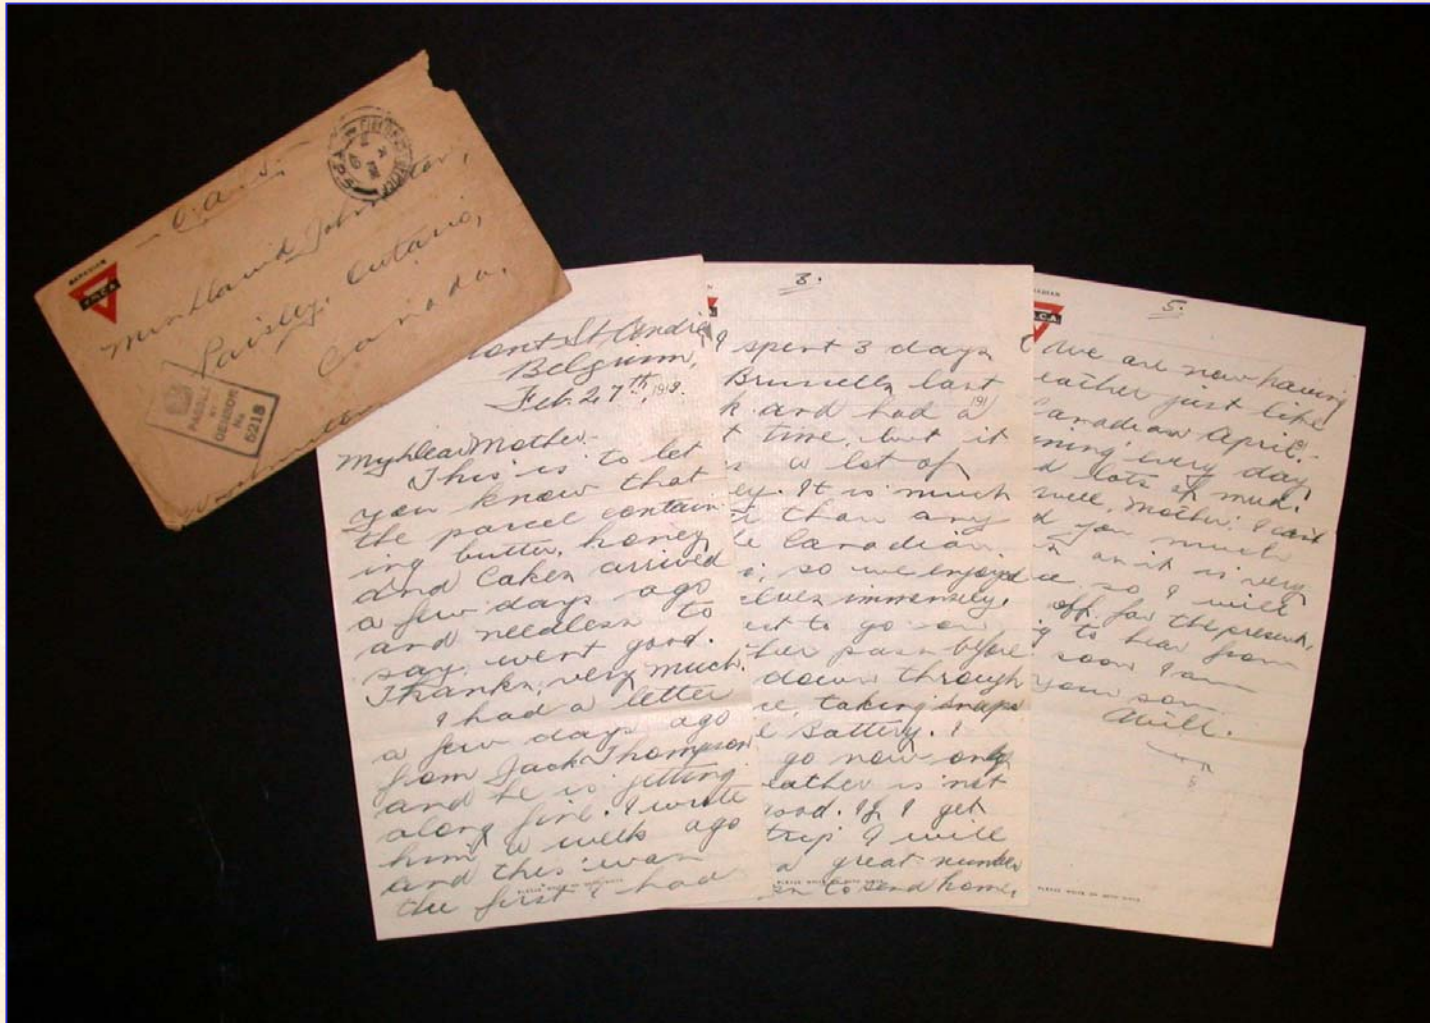 O.A.S.
CANADIAN
Y.M.C.A.
Mrs. David Johnston,
Paisley, Ontario,
Canada.
PASSED
BY
CENSOR
No
5218
mont St. Andre
Belgium,
Feb. 27th, 1919.
My Dear Mother.-
This is to let
you know that
the parcel contain-
ing butter, honey,
and Cakes arrived
a few days ago
and needless to
say, went good.
Thanks, very much.
I had a letter
a few days ago
from Jack Thompson
and he is getting
along fine. I wrote
him a week ago
and this was
the first I had
3.
I spent 3 days
Brussels last
191
k and had a
t time, but it
a lot of
ey. It is much
than any
le Canadian
so we enjoyed
elves immensely.
to go on
ther pass before
down through
ce, taking snaps
Battery. I
go now only
eather is not
good. If I get
trip I will
a great number
en to send home.
5.
ADIAN
M.C.A.
We are now having
eather just like
Canadian April.-
ning every day,
d lots of mud.
Well, Mother, I can't
d you much
as it is very
ce so I will
off for the present,
g to hear from
soon I am
Your son
Will.